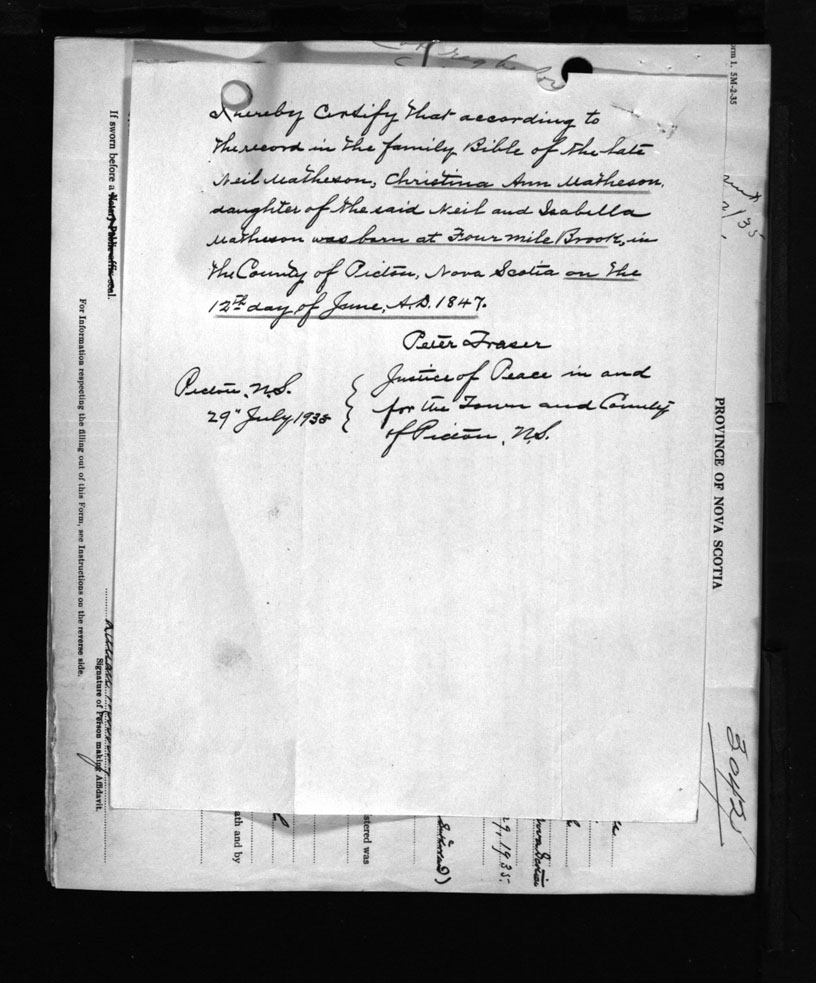 I hereby Certify that according to
the record in the family Bible of the late
Neil Matheson, Christina Ann Matheson,
daughter of the said Neil and Isabella
Matheson was born at Four mile Brook, in
the County of Pictou, Nova Scotia on the
12th day of June, A.D. 1847.
Peter Fraser
Justice of Peace in and
for the Town and County
of Pictou, N.S.
Pictou, N.S.
29" July 1935
If sworn before a Notary Public affix seal.
For Information respecting the filling out of this Form, see Instructions on the reverse side.
Signature of Person making Affidavit.
PROVINCE OF NOVA SCOTIA
rm 1. 5M-2-35
ath and by
stered was
29, 1935.